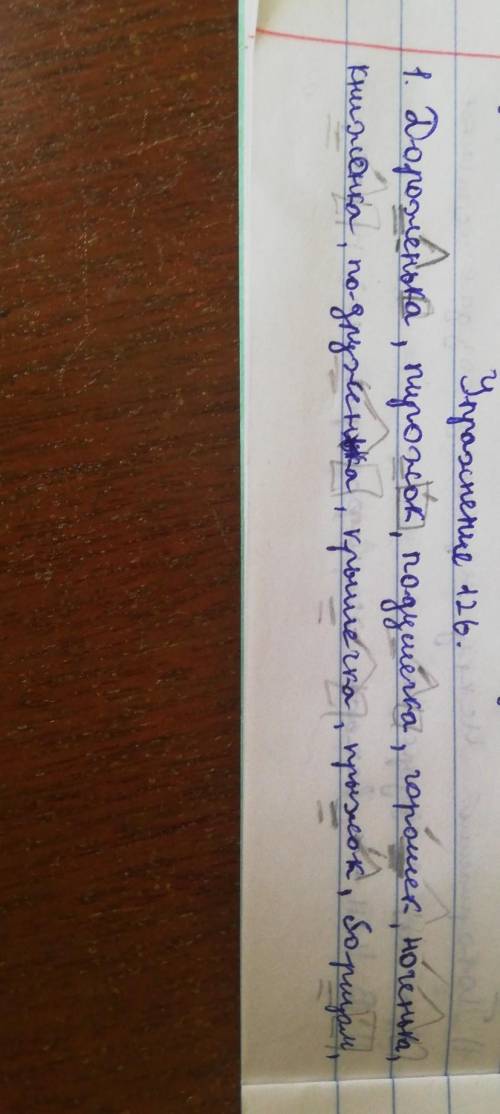 Упражнение 126.
1. Дороженька, пирожок, подушечка, горошек, ноченька,
книженка, подруженька, крышечка, прыжок, борщам,